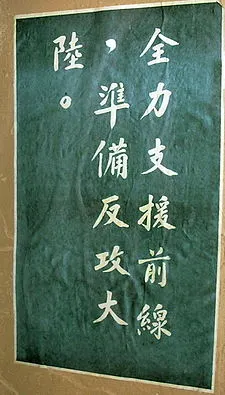 全力支援前線
，準備反攻大
陸。